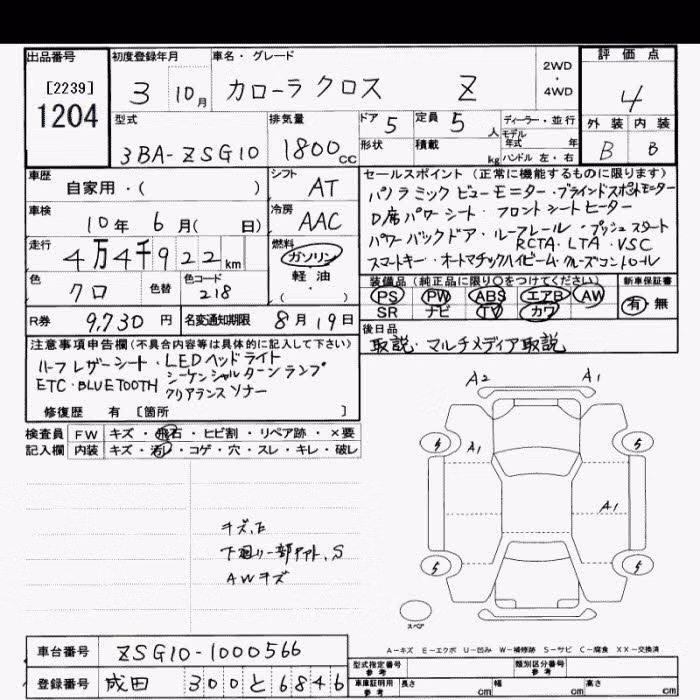 出品番号
[2239]
1204
初度登録年月
3 10月
車名・グレード
カローラ クロス Z
2WD
・
4WD
評価点
4
外装 内装
B B
型式
3BA-ZSG10
排気量
1800cc
ドア 5
定員 5人
形状
積載 kg
ディーラー・並行
モデル年式 年
ハンドル 左・右
車歴
自家用・( )
シフト
AT
車検
10年 6月( 日)
冷房
AAC
走行
4万4千922km
燃料
ガソリン
軽油
(・)
色
クロ
色替
色コード
218
R券 9,730円
名変通知期限 8月19日
セールスポイント(正常に機能するものに限ります)
パノラミックビューモニター・ブラインドスポットモニター
D席パワーシート・フロントシートヒーター
パワーバックドア・ルーフレール・プッシュスタート
RCTA・LTA・VSC
スマートキー・オートマチックハイビーム・クルーズコントロール
装備品(純正品に限り○をつけてください)
PS PW ABS エアB AW
SR ナビ TV カワ
新車保証書
有・無
後日品
取説・マルチメディア取説
注意事項申告欄(不具合内容等は具体的に記入して下さい)
ハーフレザーシート・LEDヘッドライト
ETC・BLUETOOTH シーケンシャルターンランプ
クリアランスソナー
修復歴 有[箇所 ]
検査員 FW キズ・飛石・ヒビ割・リペア跡・×要
記入欄 内装 キズ・汚レ・コゲ・穴・スレ・キレ・破レ
A2 A1
5 A1 5
A1
5 5
スペア
下廻り一部 S
AWキズ
A-キズ E-エクボ U-凹み W-補修跡 S-サビ C-腐食 XX-交換済
車台番号 ZSG10-1000566
登録番号 成田 300 と 6846
型式指定番号 参考
類別区分番号 参考
車庫証明用 参考 長さ cm 幅 cm 高さ cm